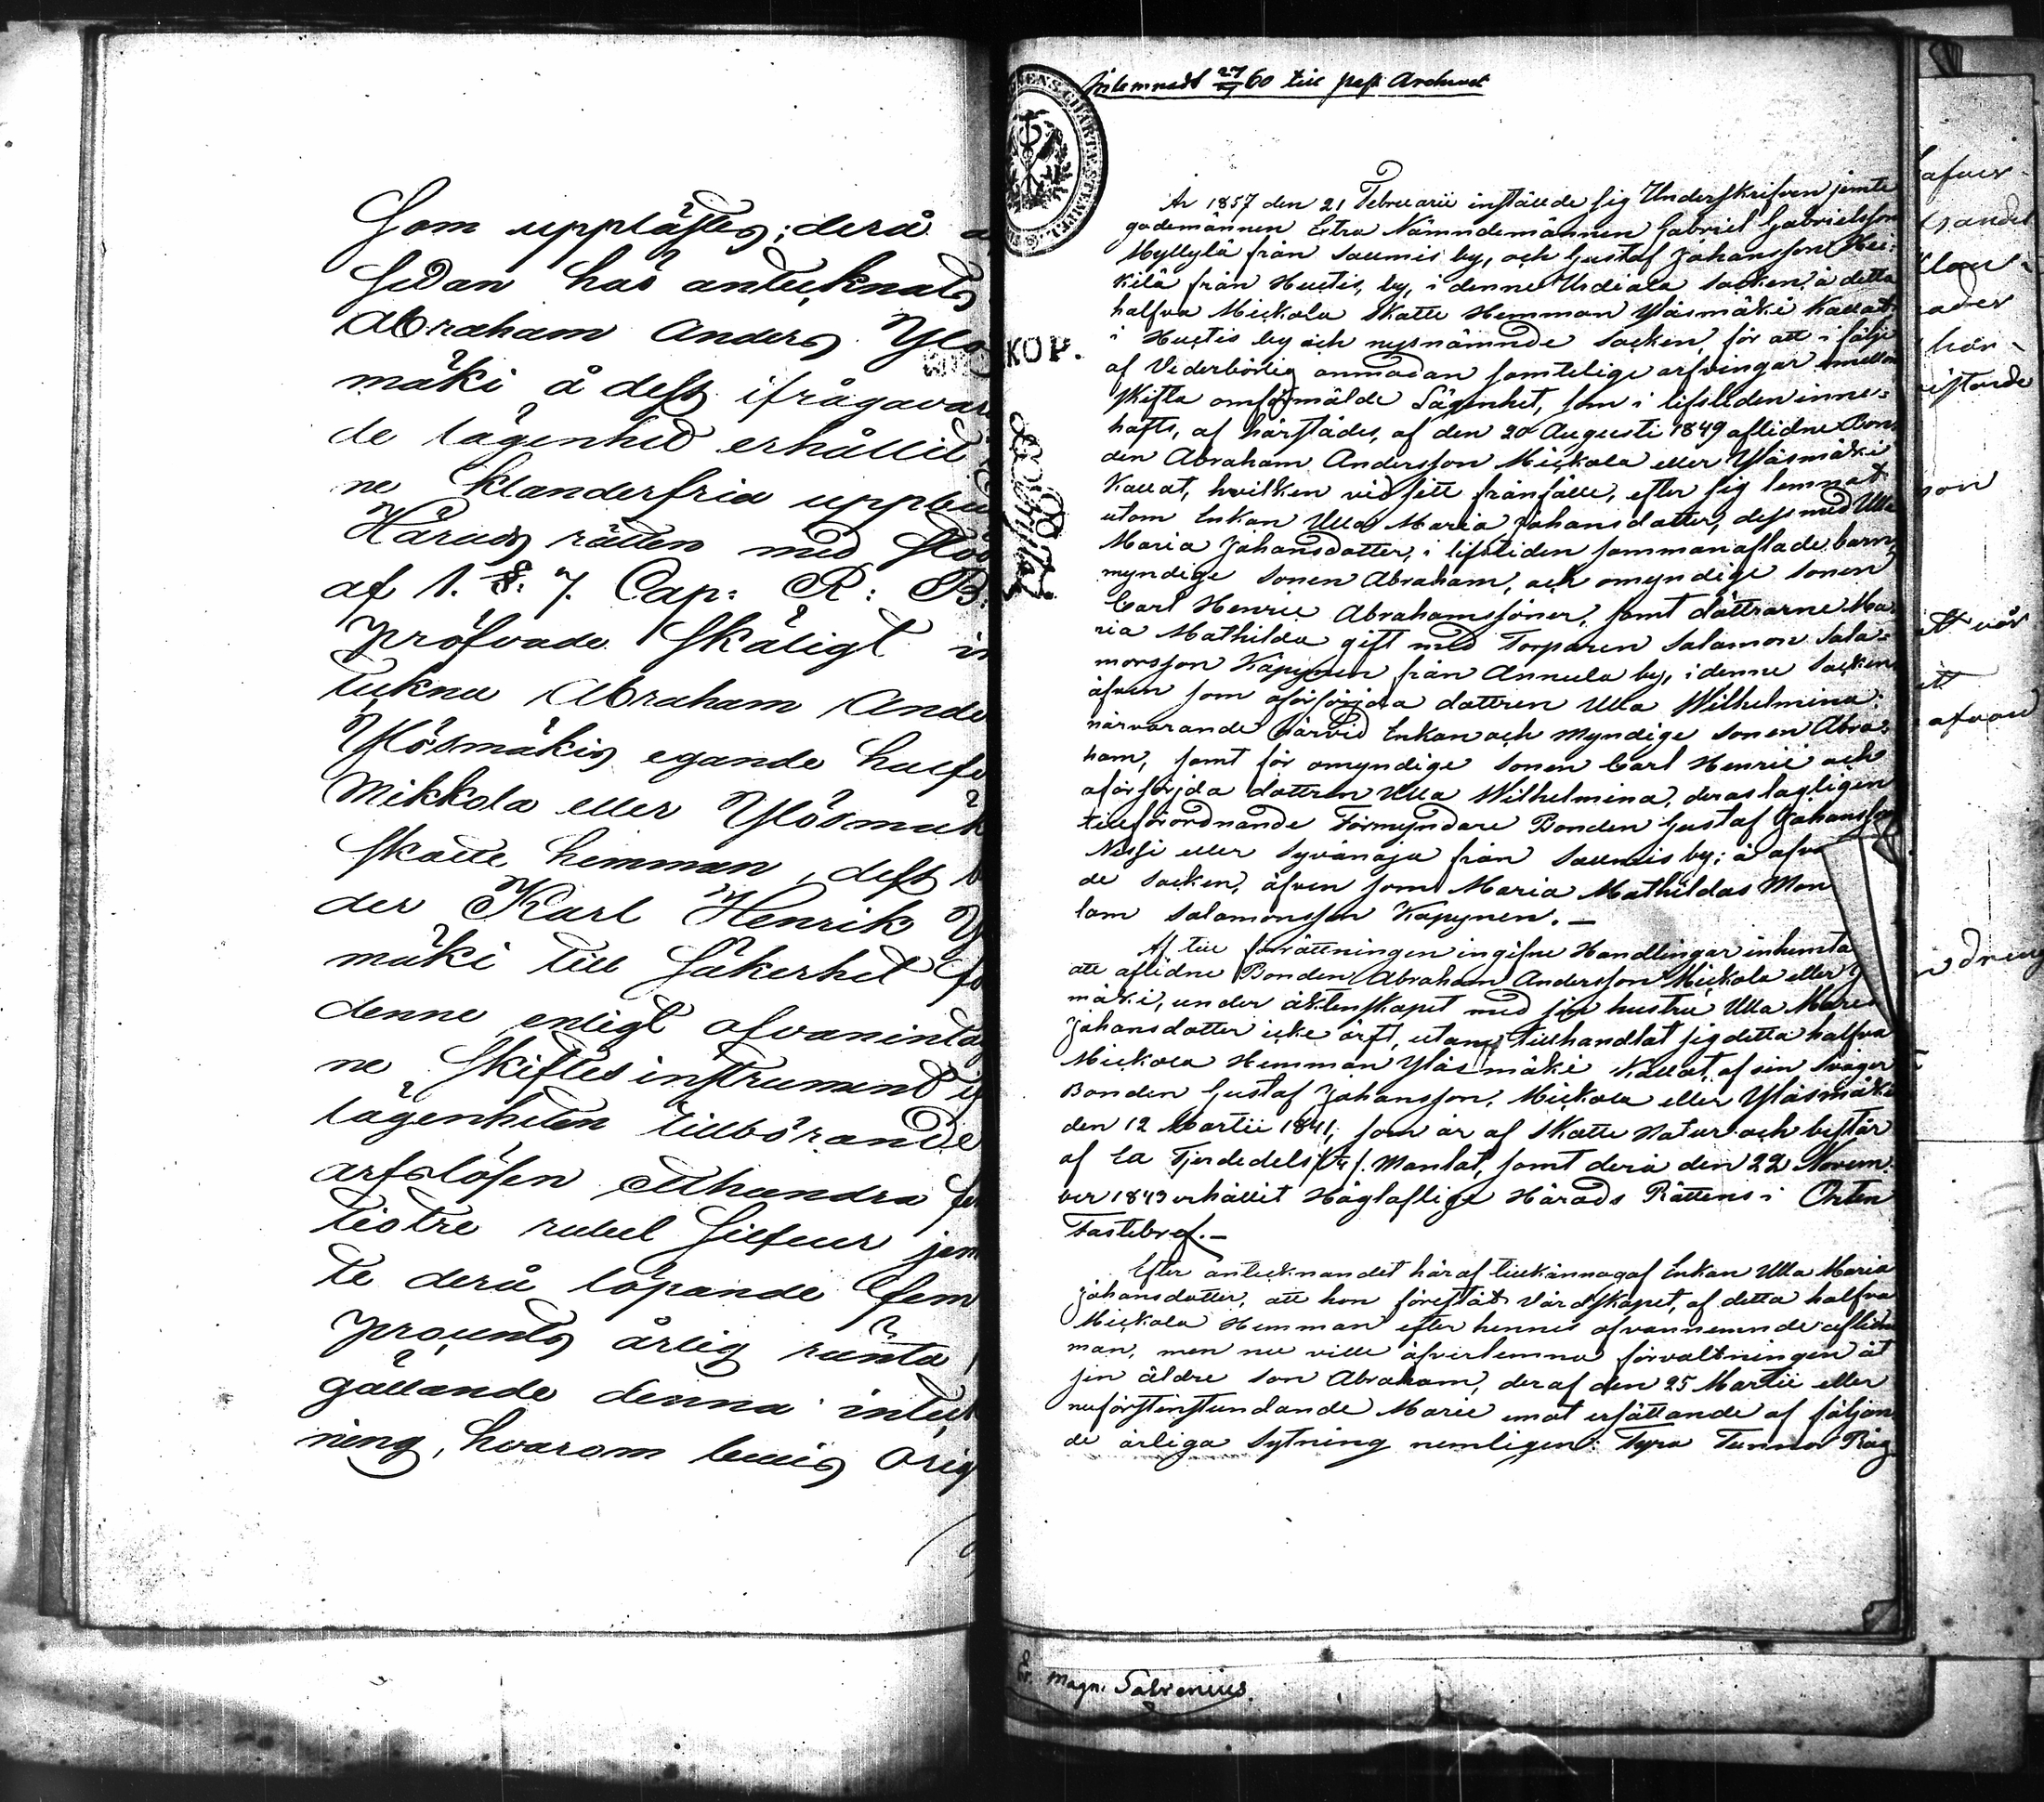 Som upplästes; derå
sedan har antecknats
Abraham Anders Ylös
mäki å dess ifrågavar
de lägenhet erhållit
ne klanderfria uppbud
Härads rätten med stöd
af 1. §. 7. Cap: R: B:
pröfvade skäligt in
teckna Abraham Ande
Ylösmäkis egande halfv
Mikkola eller Ylösmäk
Skatte hemman, dess b
der Karl Henrik Y
mäki till säkerhet fö
denne enligt ofvaninta
ne Skiftesinstrument
lägenheten tillhörande
arfslösen Etthundra
tiotre rubel Silfver jem
te derå löpande fem
procents årlig ränta
gällande denna inteck
ning, hvarom bevis
Inlemnadt 27/60 till Archivet
År 1857 den 21 Februarii inställde sig Underskrifven jemte
godemännen Extra Nämndemännen Gabriel Gabrielsson
Myllylä från Saumis by, och Gustaf Johansson Hei-
kilä från Huctis by, i denne Urdiala Socken, å detta
halfva Mickola Skatte Hemman Yläsmäki Kallat
i Huctis by och nysnämnde Socken, för att i följe
af Vederbörlig anmodan samtelige arfvingar emellan
skifta omförmälde Lägenhet, som i lifstiden inne-
hafts, af härstädes, af den 20 Augusti 1849 aflidne Bon
den Abraham Andersson Mickola eller Yläsmäki
Kallat, hvilken vid sitt frånfälle, efter sig lemnat
utom Enkan Ulla Maria Johansdotter, dess med Ulla
Maria Johansdotter, i lifstiden sammanaflade barn,
myndige Sonen Abraham, och omyndige Sonen
Carl Henric Abrahamssöner, samt döttrarne Ma
ria Mathilda gift med Torparen Salamon Sala-
monsson Käpynen från Annula by, i denne Socken
äfven som oförsörjda dottren Ulla Wilhelmina:
närvarande härvid Enkan och Myndige Sonen Abra-
ham, samt för omyndige Sonen Carl Henric och
oförsörjda dottren Ulla Wilhelmina, deras lagligen
tillförordnande Förmyndare Bonden Gustaf Johansson
Nissi eller Syvänoja från Saumis by; å
de Socken, äfven som Maria Mathildas Man
Salamonsson Käpynen. –
Af till förrättningen ingifne Handlingar inhemta
att aflidne Bonden Abraham Andersson Mickola eller
mäki, under äktenskapet med sin hustru Ulla Maria
Johansdotter icke ärft, utan tillhandlat sig detta halfva
Mickola Hemman Yläsmäki Kallat, af sin Svåger
Bonden Gustaf Johansson, Mickola eller Yläsmäki
den 12 Martii 1841, som är af Skatte Natur och består
af En Fjerdedels (1/4) Mantal, samt derå den 22 Novem
ber 1843 erhållit Höglaflige Härads Rättens i Orten
Fastebref. –
Efter antecknandet häraf tillkännagaf Enkan Ulla Maria
Johansdotter, att hon förestådt Värdskapet, af detta halfva
Mickola Hemman efter hennes ofvannemnde aflidne
man, men nu ville öfverlemna förvaltningen åt
sin äldre son Abraham, der af den 25 Martii eller
nuförstinstundande Marie emot ersättande af följan
de årliga Sytning nemligen: Fyra Tunnor Råg
Magn. Salvenius.
KOP.